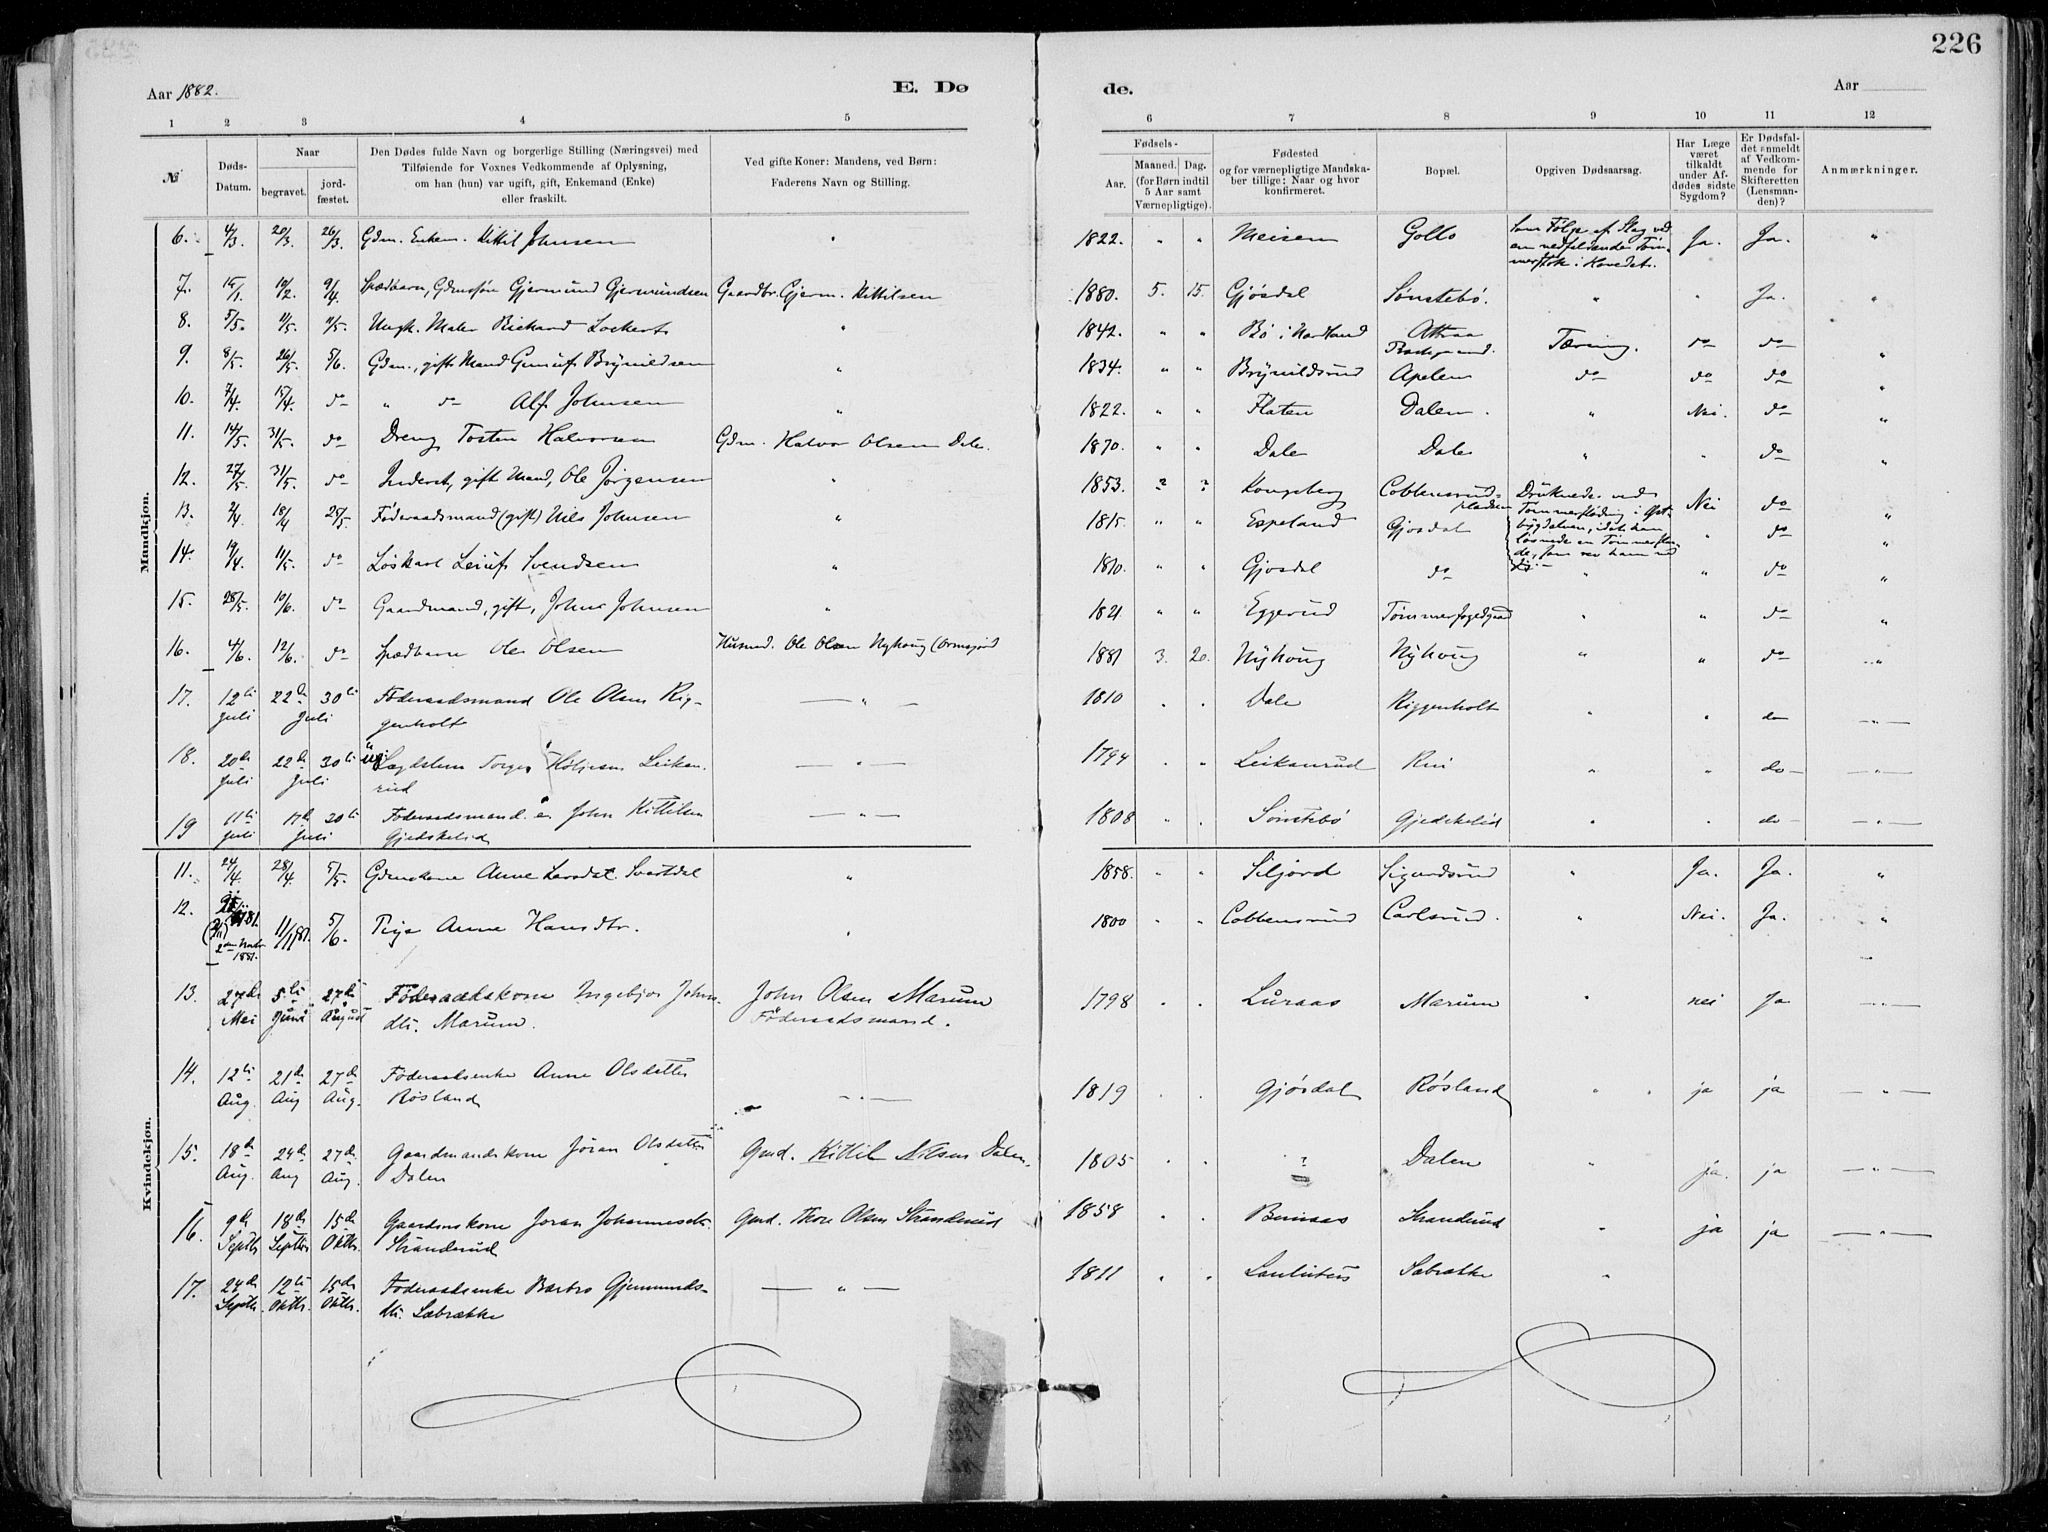 226
Aar 1882.
E. Dø
de.
Aar
1 2 3 4 5 6 7 8 9 10 11 12
№
Døds-Datum.
Naar
begravet.
jord-fæstet.
Den Dødes fulde Navn og borgerlige Stilling (Næringsvei) med
Tilføiende for Voxnes Vedkommende af Oplysning,
om han (hun) var ugift, gift, Enkemand (Enke)
eller fraskilt.
Ved gifte Koner: Mandens, ved Børn:
Faderens Navn og Stilling.
Fødsels-
Aar.
Maaned. Dag.
(for Børn indtil
5 Aar samt
Værnepligtige).
Fødested
og for værnepligtige Mandska-
ber tillige: Naar og hvor
konfirmeret.
Bopæl.
Opgiven Dødsaarsag.
Har Læge
været
tilkaldt
under Af-
dødes sidste
Sygdom?
Er Dødsfal-
det anmeldt
af Vedkom-
mende for
Skifteretten
(Lensman-
den)?
Anmærkninger.
Mandkjøn.
6. 4/3. 20/3. 26/3. Gdm. Enkem. Kittil Johnsen " 1822. " " Meisem Gollo Som Følge af Slag ved
en nedfaldende Tøm-
merstok i Hovedet. Ja. Ja. "
7. 15/1. 19/2. 9/4. Spædbarn, Gdmssøn Gjermund Gjermundsen Gaardbr. Gjerm. Kittilsen 1880. 5. 15. Gjøsdal Sønstebö. " " Ja. "
8. 5/5. 11/5. 11/5. Ungk. Maler Rickard Lockert " 1842. " " Bö i Nordland Attraa
Tæring. do do "
9. 8/5. 26/5. 5/6. Gdm., gift Mand Gunuf Brynildsen " 1834. " " Brynildsrud Apelen do do do "
10. 7/4. 15/4. do " do Alf Johnsen " 1822. " " Flaten Dalen. " Nei. do "
11. 14/5. 31/5. do Dreng Tosten Halvorsen Gdm. Halvor Olsen Dale. 1870. " " Dale Dale " " do "
12. 27/5. 31/5. do Inderst, gift Mand, Ole Jørgensen " 1853. ? ? Kongsberg Cobbensrud-
pladsen Druknede ved
Tømmerflöding i Øst-
bygdelven, idet han
løsnede en Tømmerflaa-
de, som rev ham ud
Nei do "
13. 2/4. 18/4 25/5. Føderaadsmand (gift) Nils Johnsen " 1815. " " Espeland Gjøsdal " do "
14. 19/4. 11/5. do Løskarl Leiuf Svendsen " 1810. " " Gjøsdal do " " do "
15. 28/5. 10/6. do Gaardmand, gift, John Johnsen " 1821. " " Eggerud Tømmerfogedgaard " " do "
16. 4/6. 12/6. do Spædbarn Ole Olsen Husmd. Ole Olsen Nyhoug (Ormsjord 1881 3. 20. Nyhoug Nyhoug " " do "
17. 12te
Juli 22de 30te
Juli Føderaadsmand Ole Olsen Rig-
genholt — " — 1810 " " Dale Riggenholt " " do — " —
18. 20de
Juli 22de 30te
Juli Lægdslem Torger Høljesen Leikan-
rud — " — 1794 " " Leikanrud Rui " " do — " —
19 11te
Juli 17de 30te
Juli Føderaadsmand John Kittilsen
Gjedskelid — " — 1808 " " Sønstebö Gjedskelid " " do — " —
Kvindekjøn.
11. 24/4. 28/4 5/5. Gdmskone Anne Larsdat. Svartdal " 1858. " " Siljord Sigurdsrud " Ja. Ja. "
12. 2den Novbr
1881. 11/11 81. 5/6. Pige Anne Hansdtr. " 1800 " " Cobbensrud Carlsrud. " Nei. Ja. "
13. 27de
Mei 5te
Juni 27de
August Føderaadskone Ingebjør Johns-
dtr. Marum. John Olsen Marum
Føderaadsmand. 1798 " " Luraas Marum " nei Ja — " —
14. 12te
Aug. 21de
Aug 27de
Aug. Føderaadsenke Anne Olsdatter
Røsland — " — 1819 " " Gjøsdal Røsland " ja ja — " —
15. 18de
Aug. 24de
Aug 27de
Aug. Gaardmandskone Jøran Olsdatter
Dalen Gmd. Kittil Nilsen Dalen. 1805 " " ? Dalen " ja. ja — " —
16. 9de
Septbr. 18de
Septbr. 15de
Oktbr. Gaardmskone Joran Johannesdtr.
Stranderud Gmd. Thore Olsen Stranderud 1858 " " Bernaas Stranderud " ja ja — " —
17. 24de
Septbr. 12te
Oktbr. 15de
Oktbr. Føderaadsenke Barbro Gjermunds-
dtr. Læbrække — " — 1811 " " Læbrække "